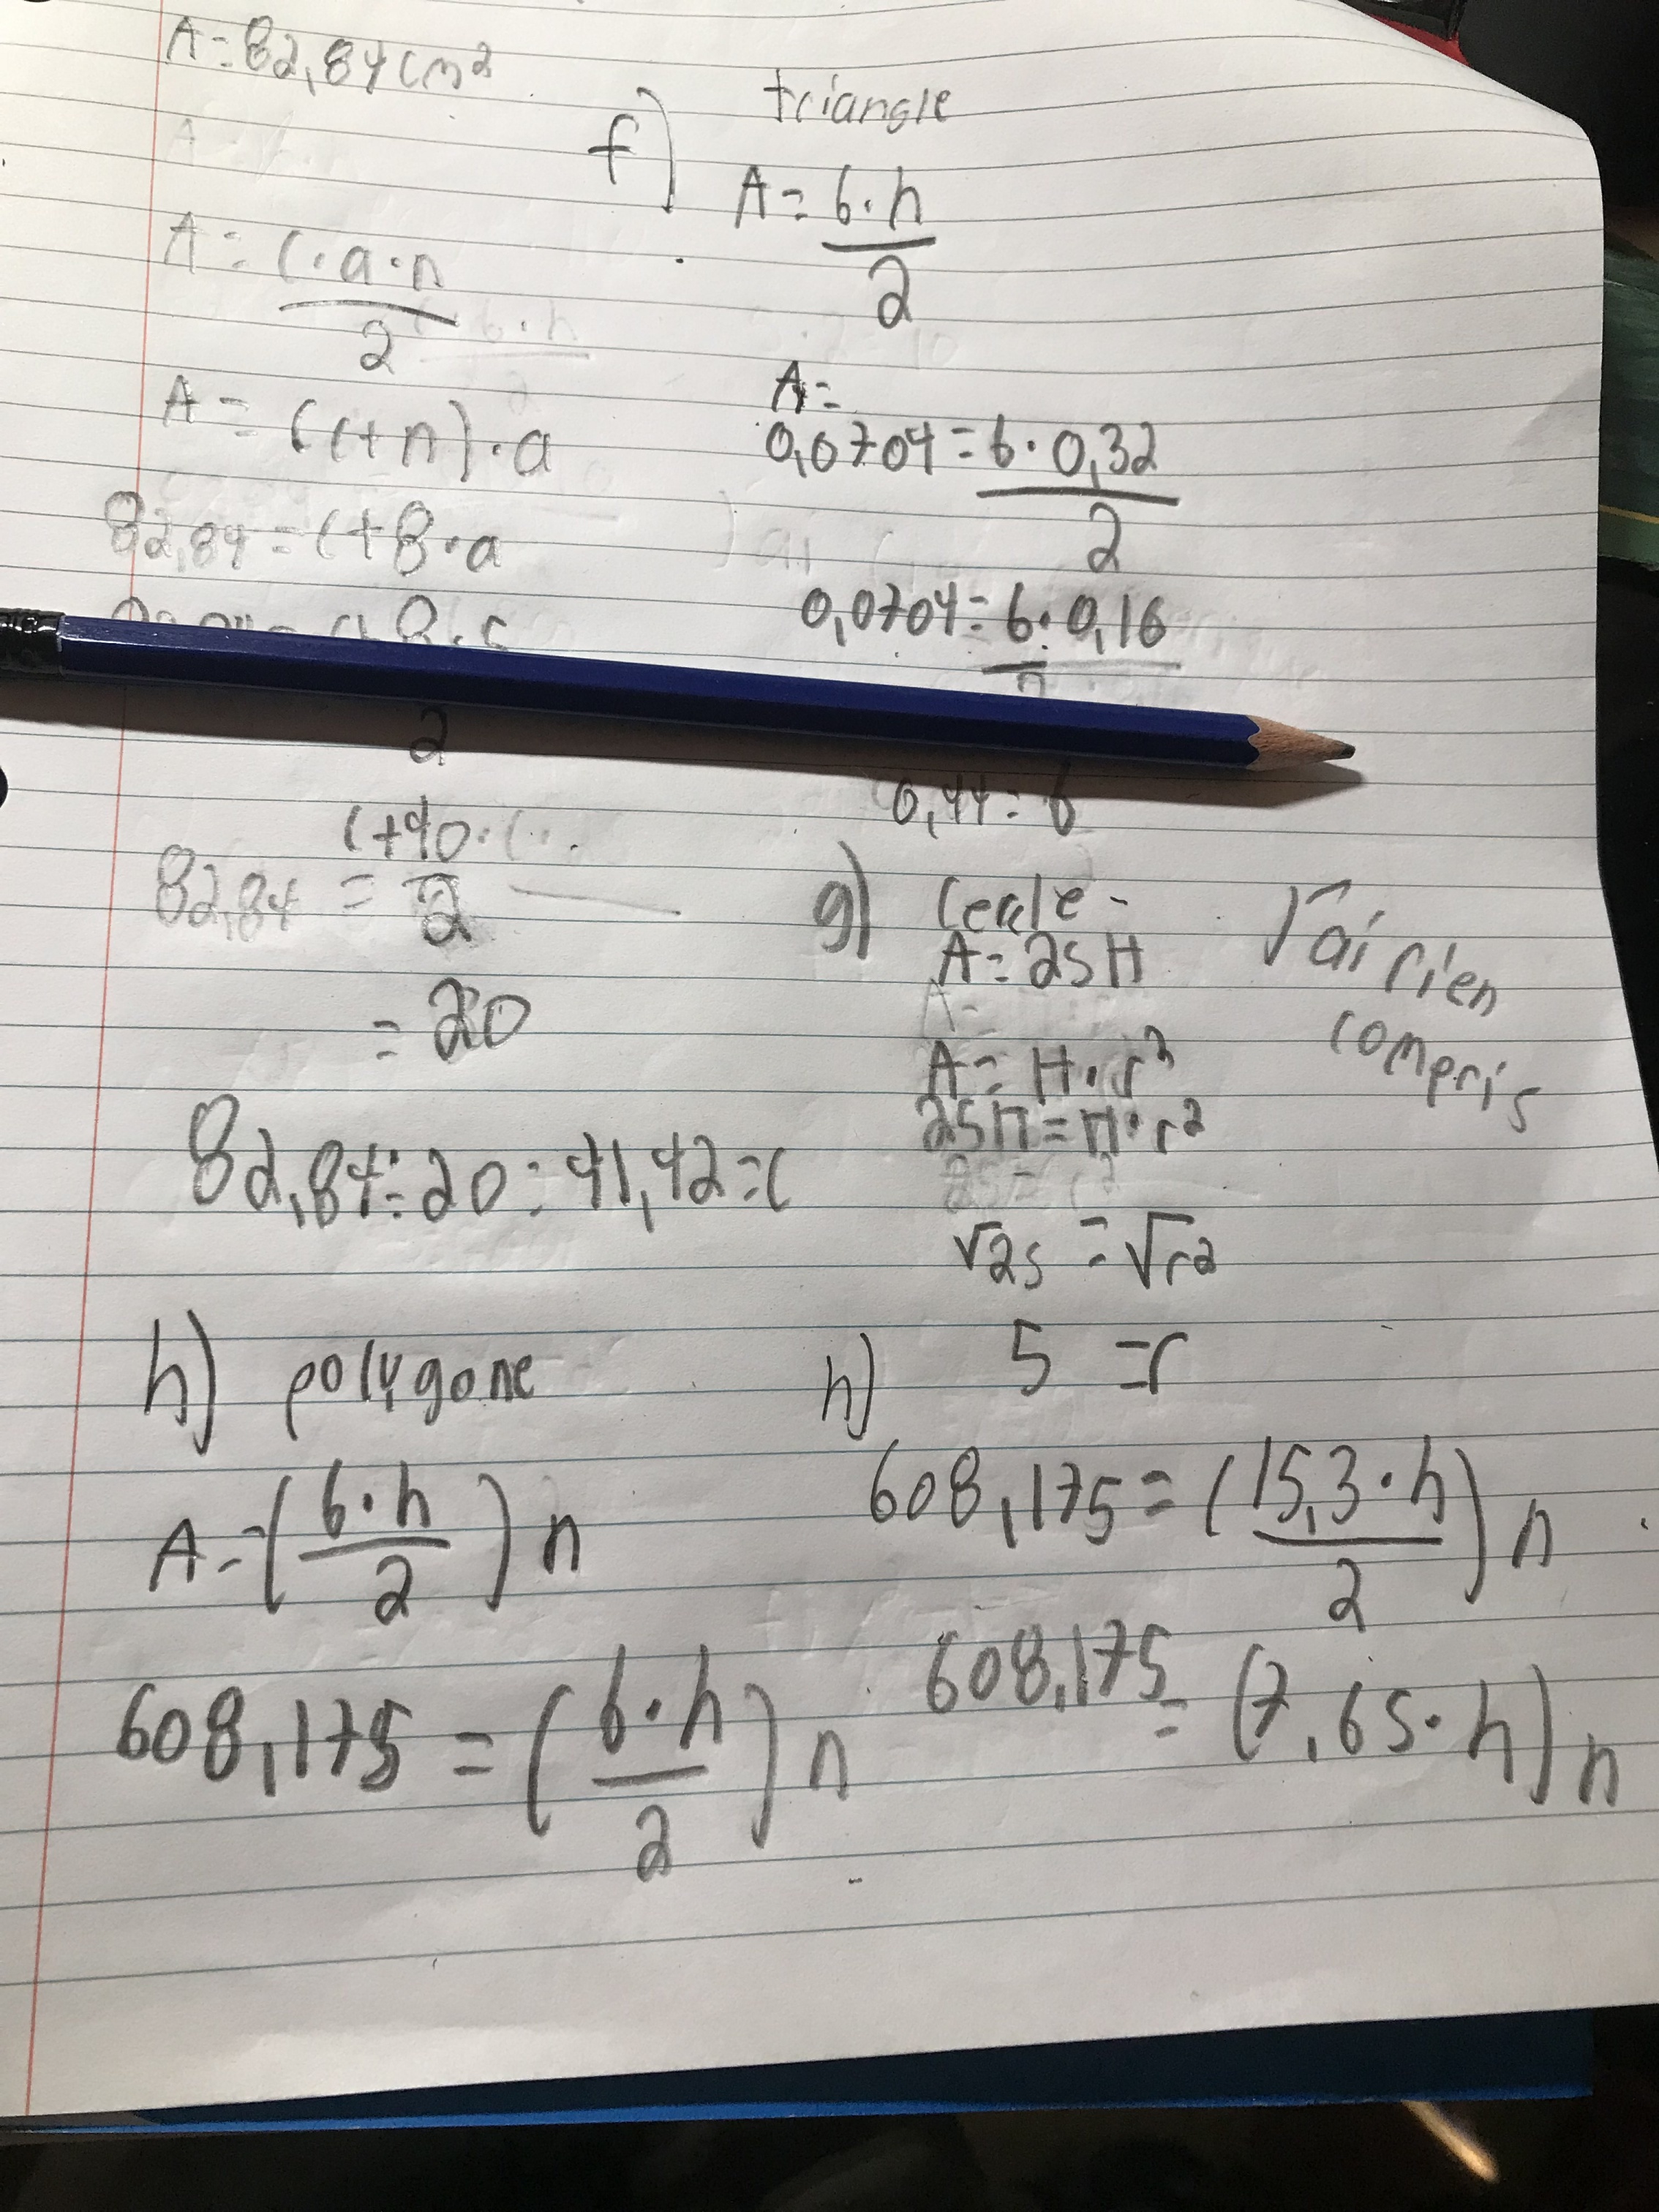 A = 82,84 cm²
A = c·a·n
2
A = (c+n)·a
82,84 = c+8·a
2
c+40·
82,84 = 2
= 20
82,84÷20 = 41,42 = c
f) triangle
A = b·h
2
A =
0,0704 = b·0,32
2
0,0704 = b·0,16
0,44 = b
g) cercle -
A = 25π
A = π·r²
25π = π·r²
√25 = √r²
5 = r
J'ai rien
compris
h) polygone
A = (b·h / 2) n
608,175 = (b·h / 2) n
h)
608,175 = (15,3·h / 2) n
608,175 = (7,65·h) n